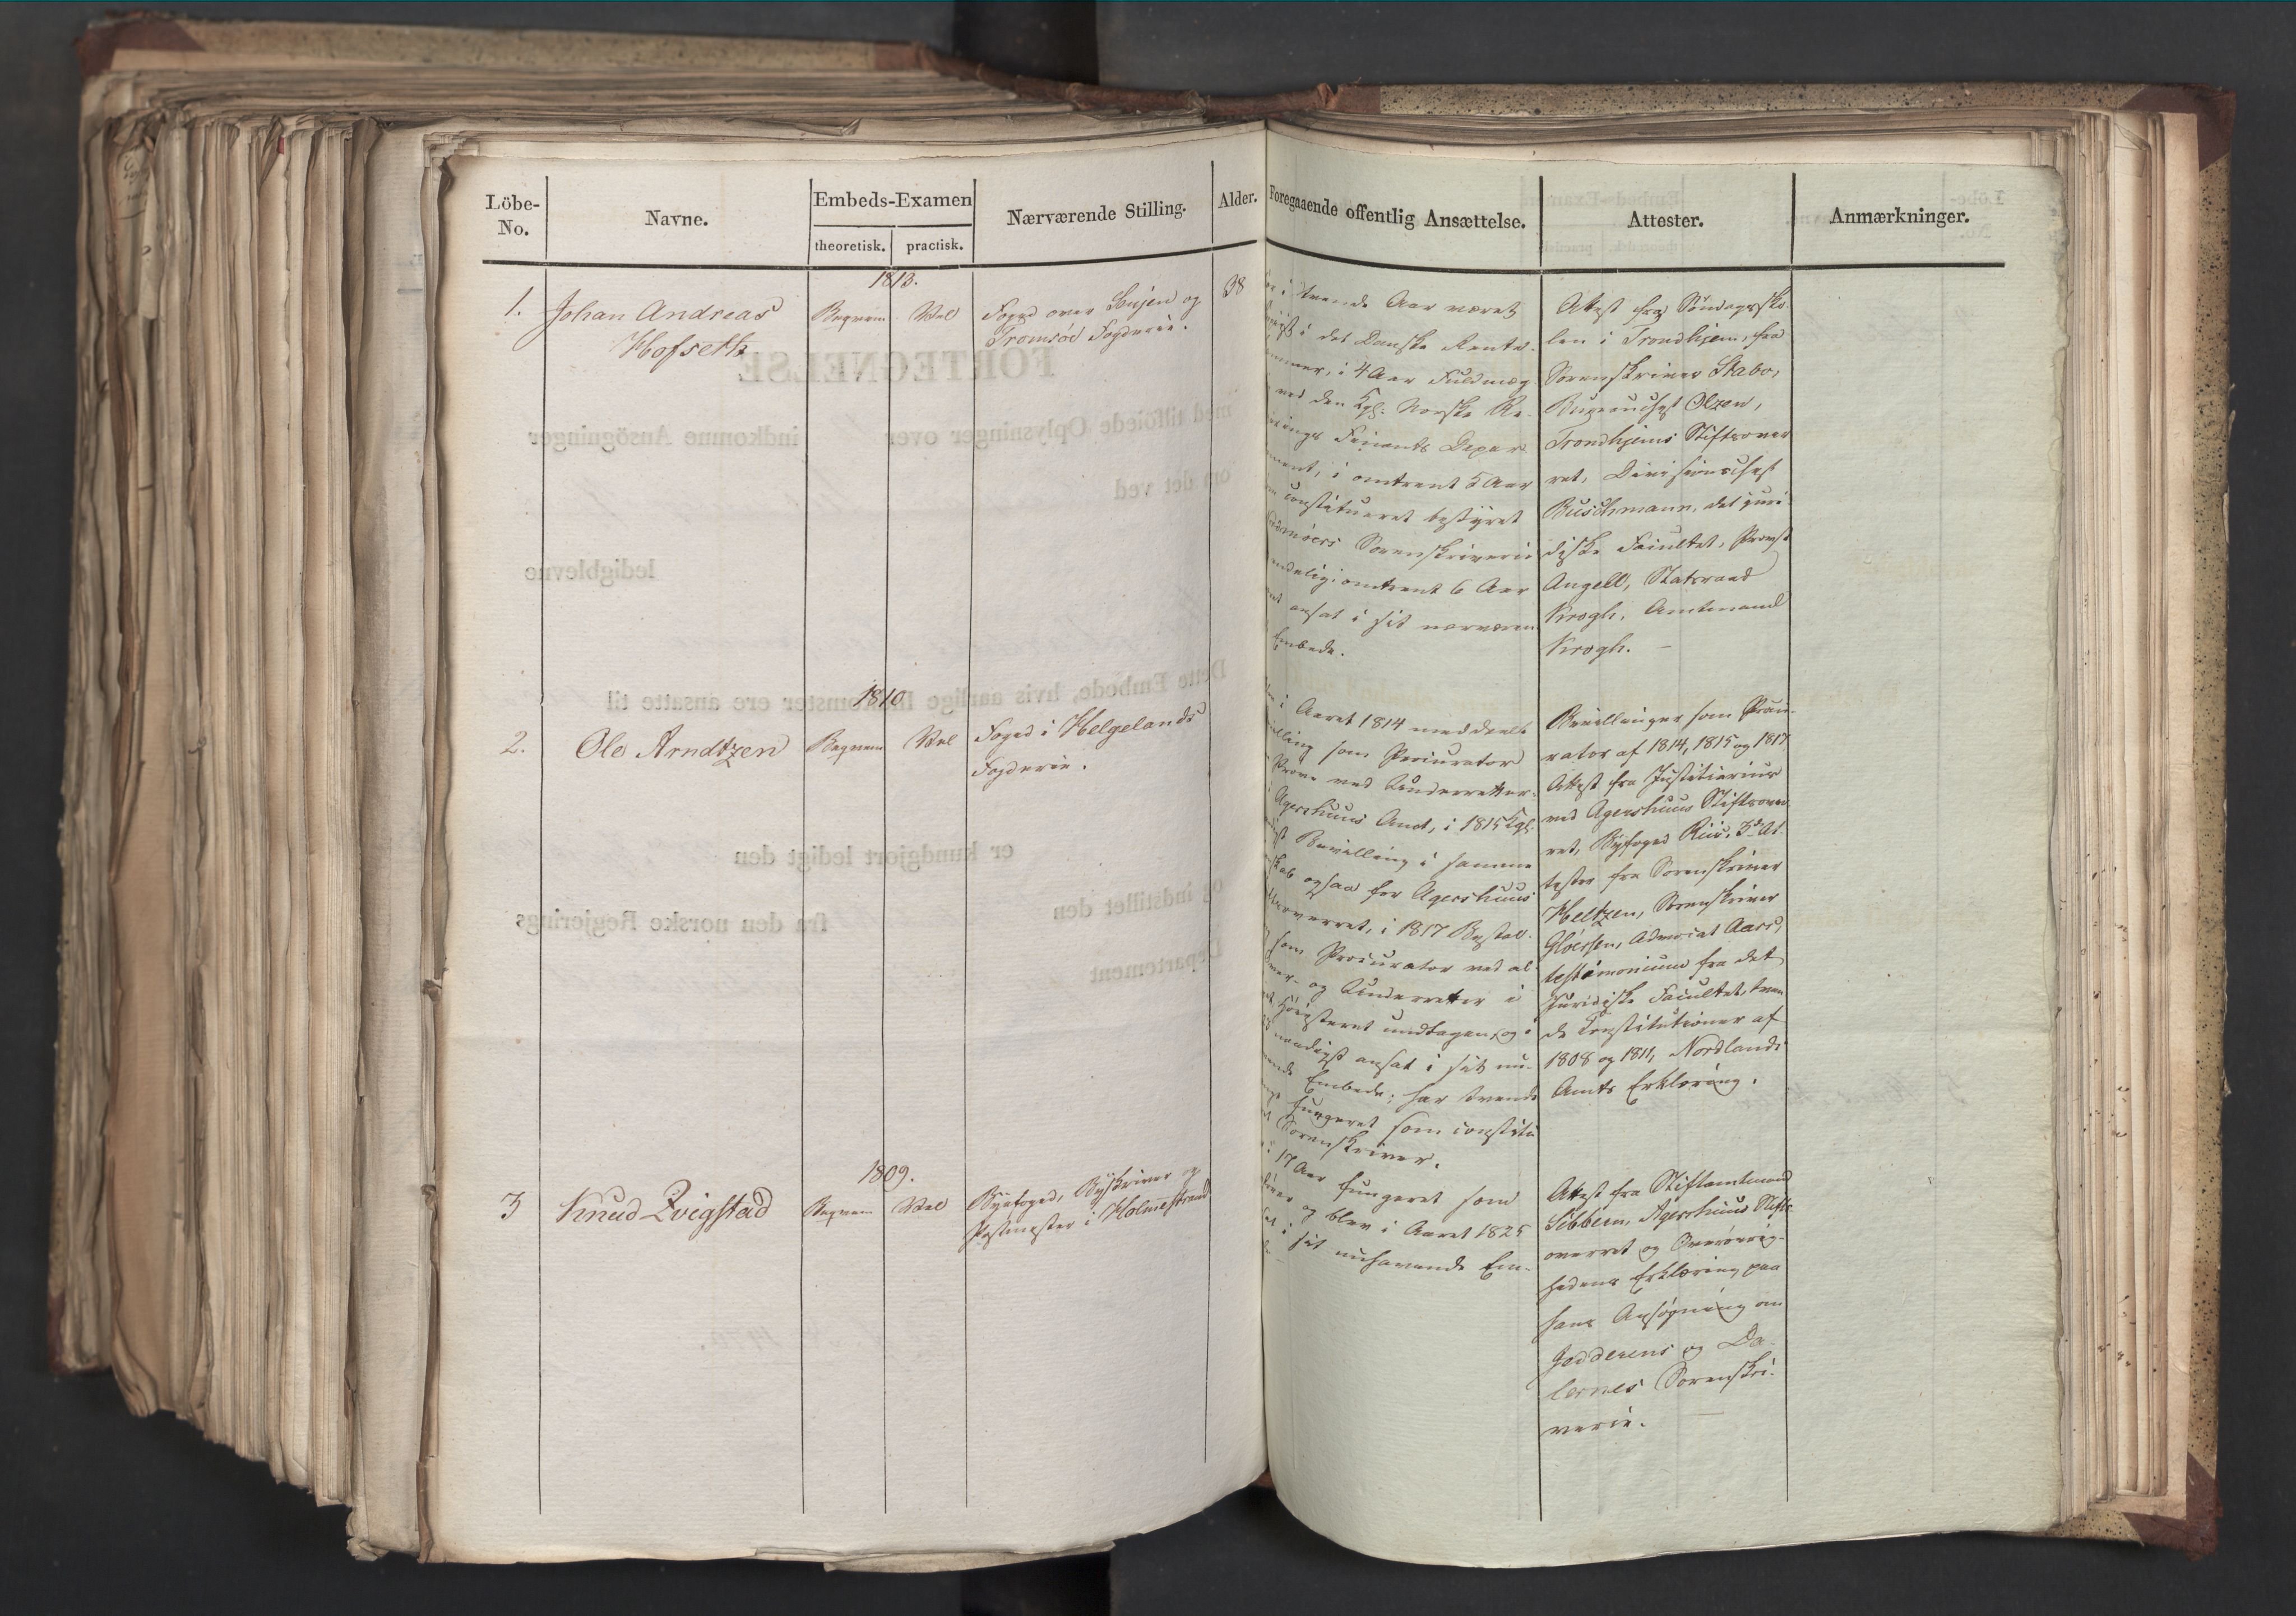 Löbe-
No.
Navne.
Embeds-Examen
theoretisk.
practisk.
Nærværende Stilling.
Alder.
Foregaaende offentlig Ansættelse.
Attester.
Anmærkninger.
1.
Johan Andreas
Hofseth
1813.
Beqvem
Vel
Foged over Senjen og
Tromsöe Fogderie.
38
i trende Aar været
i det Danske Rente-
kammer, i 4 Aar Fuldmæg-
ved den Kgl. Norske Re-
gjerings Finants Depar-
ment, i omtrent 5 Aar
constitueret bestyret
Sorenskriverie
endelig i omtrent 6 Aar
ansat i sit nærværen
Embede.
Attest fra Söndagssko-
len i Trondhjem, fra
Sorenskriver Stabo,
Bureauchef Olzen,
Trondhjems Stiftsover
ret, Divisionschef
Buschmann, det juri-
diske Facultet, Provst
Angell, Statsraad
Krogh, Amtmand
Krogh.
2.
Ole Arndtzen
1810
Beqvem
Vel
Foged i Helgelands
Fogderie.
i Aaret 1814 meddeelt
Bevilling som Procurator
Pröve ved Underretter
Agershuus Amt, i 1815 Kgl.
Bevilling i samme
skab ogsaa for Agershuus
Overret, i 1817 Bestal-
som Procurator ved al-
Over- og Underretter i
Höiesteret undtagen, og i
naadigst ansat i sit nu-
Embede; har trende
fungeret som constitu
Sorenskriver.
Bevillinger som Procu-
rator af 1814, 1815 og 1817
Attest fra Justitiarius
ved Agershuus Stiftsover
ret, Byfoged Riis, 3de At-
tester fra Sorenskriver
Heltzen, Sorenskriver
Gløersen, Advocat Aars,
testimonium fra det
juridiske Facultet, tven
de Constitutioner af
1808 og 1811, Nordlands
Amts Erklæring.
3
Knud Qvigstad
1809.
Beqvem
Vel
Byefoged, Byskriver og
Postmester i Holmestrand
i 17 Aar fungeret som
og blev i Aaret 1825
i sit nuhavende Em-
Attest fra Stiftamtmand
Sibbern, Agershuus Stifts-
overret og Overövrig-
hedens Erklæring paa
hans Ansögning om
Jedderens og Da-
lernes Sorenskri-
verie.